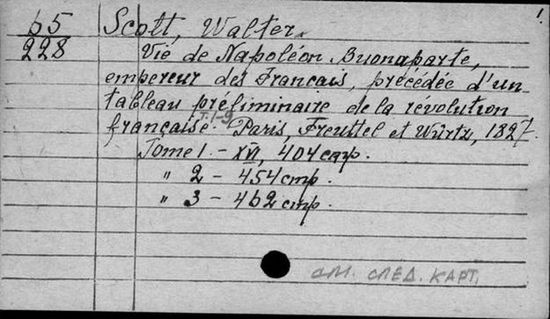 65 Scott, Walter.
228 Vie de Napoléon Buonaparte,
empereur des Français, précédée d'un
tableau préliminaire de la revolution
française. T. 1-9 Paris, Treuttel et Würtz, 1827.
Tome 1. - XVI, 404 стр.
" 2 - 454 стр.
" 3 - 462 стр.
см. след. карт.
1.